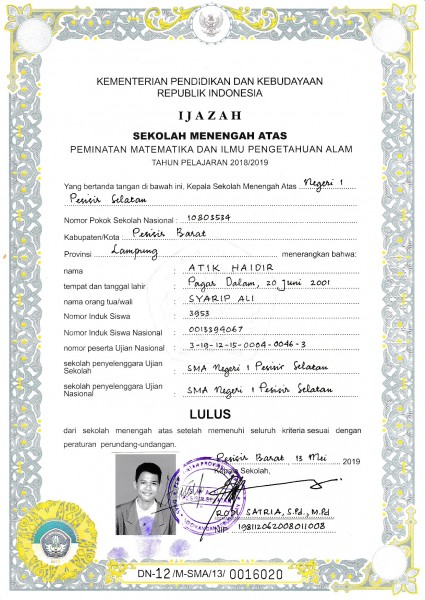 KEMENTERIAN PENDIDIKAN DAN KEBUDAYAAN
REPUBLIK INDONESIA
IJAZAH
SEKOLAH MENENGAH ATAS
PEMINATAN MATEMATIKA DAN ILMU PENGETAHUAN ALAM
TAHUN PELAJARAN 2018/2019
Yang bertanda tangan di bawah ini, Kepala Sekolah Menengah Atas Negeri 1
Pesisir Selatan
Nomor Pokok Sekolah Nasional : 10803534
Kabupaten/Kota : Pesisir Barat
Provinsi Lampung menerangkan bahwa:
nama : ATIK HAIDIR
tempat dan tanggal lahir : Pagar Dalam, 20 Juni 2001
nama orang tua/wali : SYARIP ALI
Nomor Induk Siswa : 3953
Nomor Induk Siswa Nasional : 0013394067
nomor peserta Ujian Nasional : 3-19-12-15-0064-0046-3
sekolah penyelenggara Ujian Sekolah : SMA Negeri 1 Pesisir Selatan
sekolah penyelenggara Ujian Nasional : SMA Negeri 1 Pesisir Selatan
LULUS
dari sekolah menengah atas setelah memenuhi seluruh kriteria sesuai dengan
peraturan perundang-undangan.
Pesisir Barat, 13 Mei 2019
Kepala Sekolah,
RODI SATRIA, S.Pd., M.Pd
NIP. 198112062008011008
DN-12/M-SMA/13/ 0016020